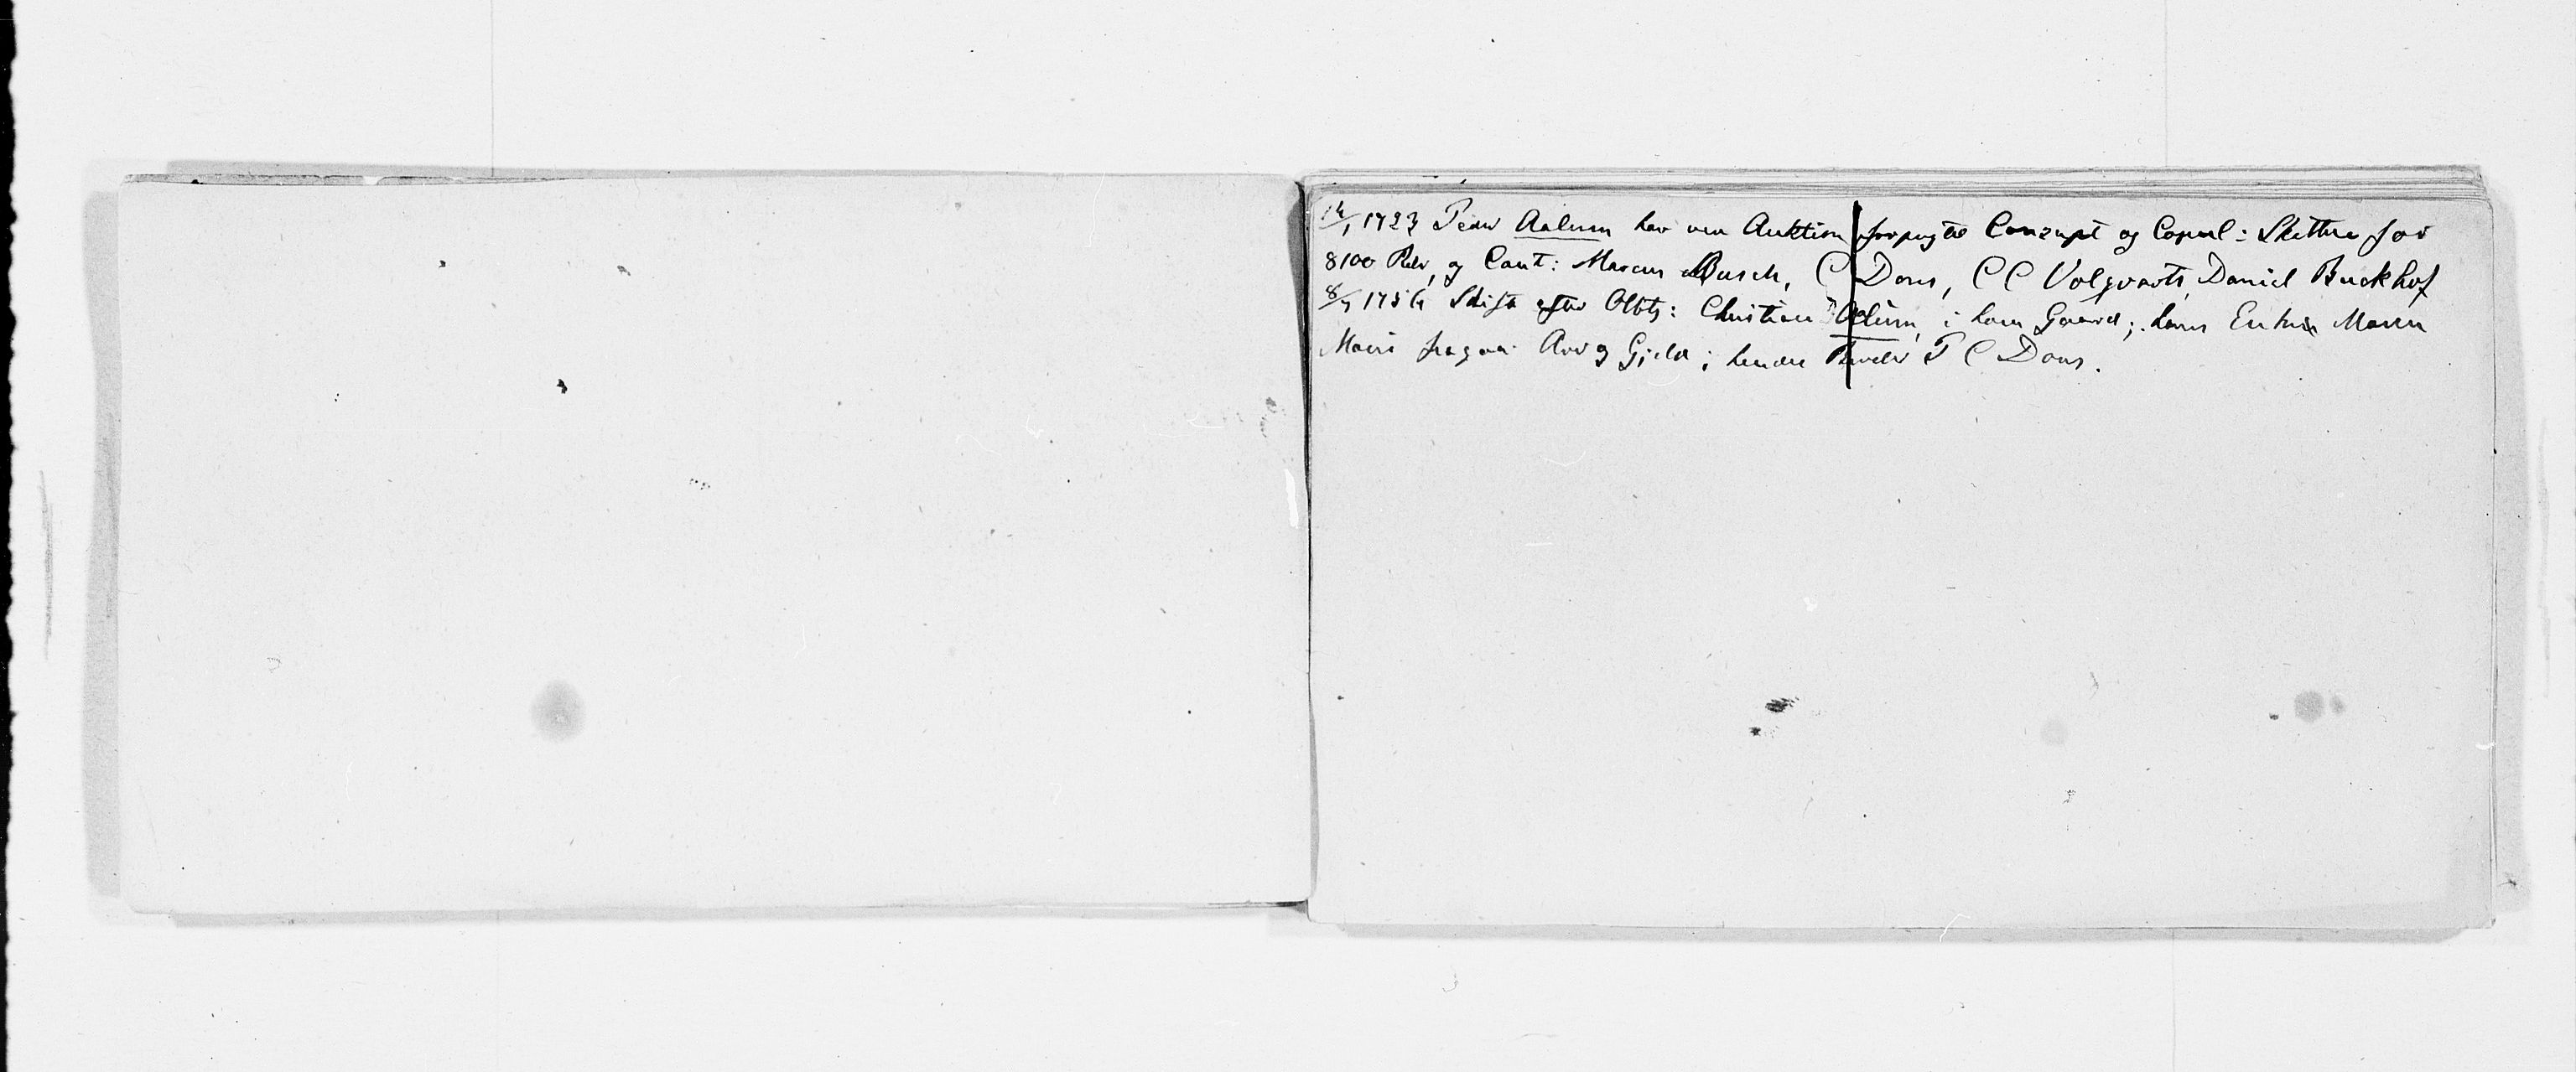 14/1 1723 Peder Aalum har ved Auktion forpagtet Conzupt og Copul: Skatter for
8100 Rdr, og Caut: Marcus Busch, C Dons, C C Volqvarts, Daniel Buckhof
8/7 1756 Skift efter Olbtz: Christian Aalum, i hans Gaard; hans Enke Maren
Maeri fragaar Arv og Gjeld; hendes Broder P C Dons.